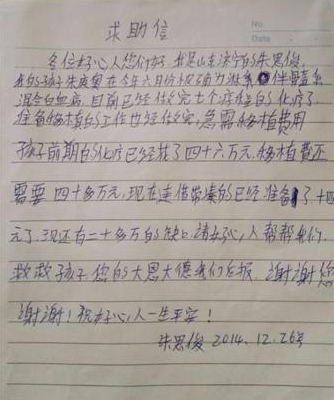 求助信
No.
Date
各位好心人您们好,我是山东济宁的朱思俊,
我的孩子朱奕奥在今年六月份被确为淋系伴髓系
混合白血病,目前已经做完七个疗程的化疗了,
准备移植的工作也经做完,急需移植费用
孩子前期的化疗已经花了四十六万元,移植费还
需要四十多万元,现在连借带凑的已经准备了十四
元了,现还有二十多万的缺口,请好心人帮帮我们
救救孩子您的大恩大德我们后报,谢谢您
谢谢!祝好心人一生平安!
朱思俊 2014.12.26号